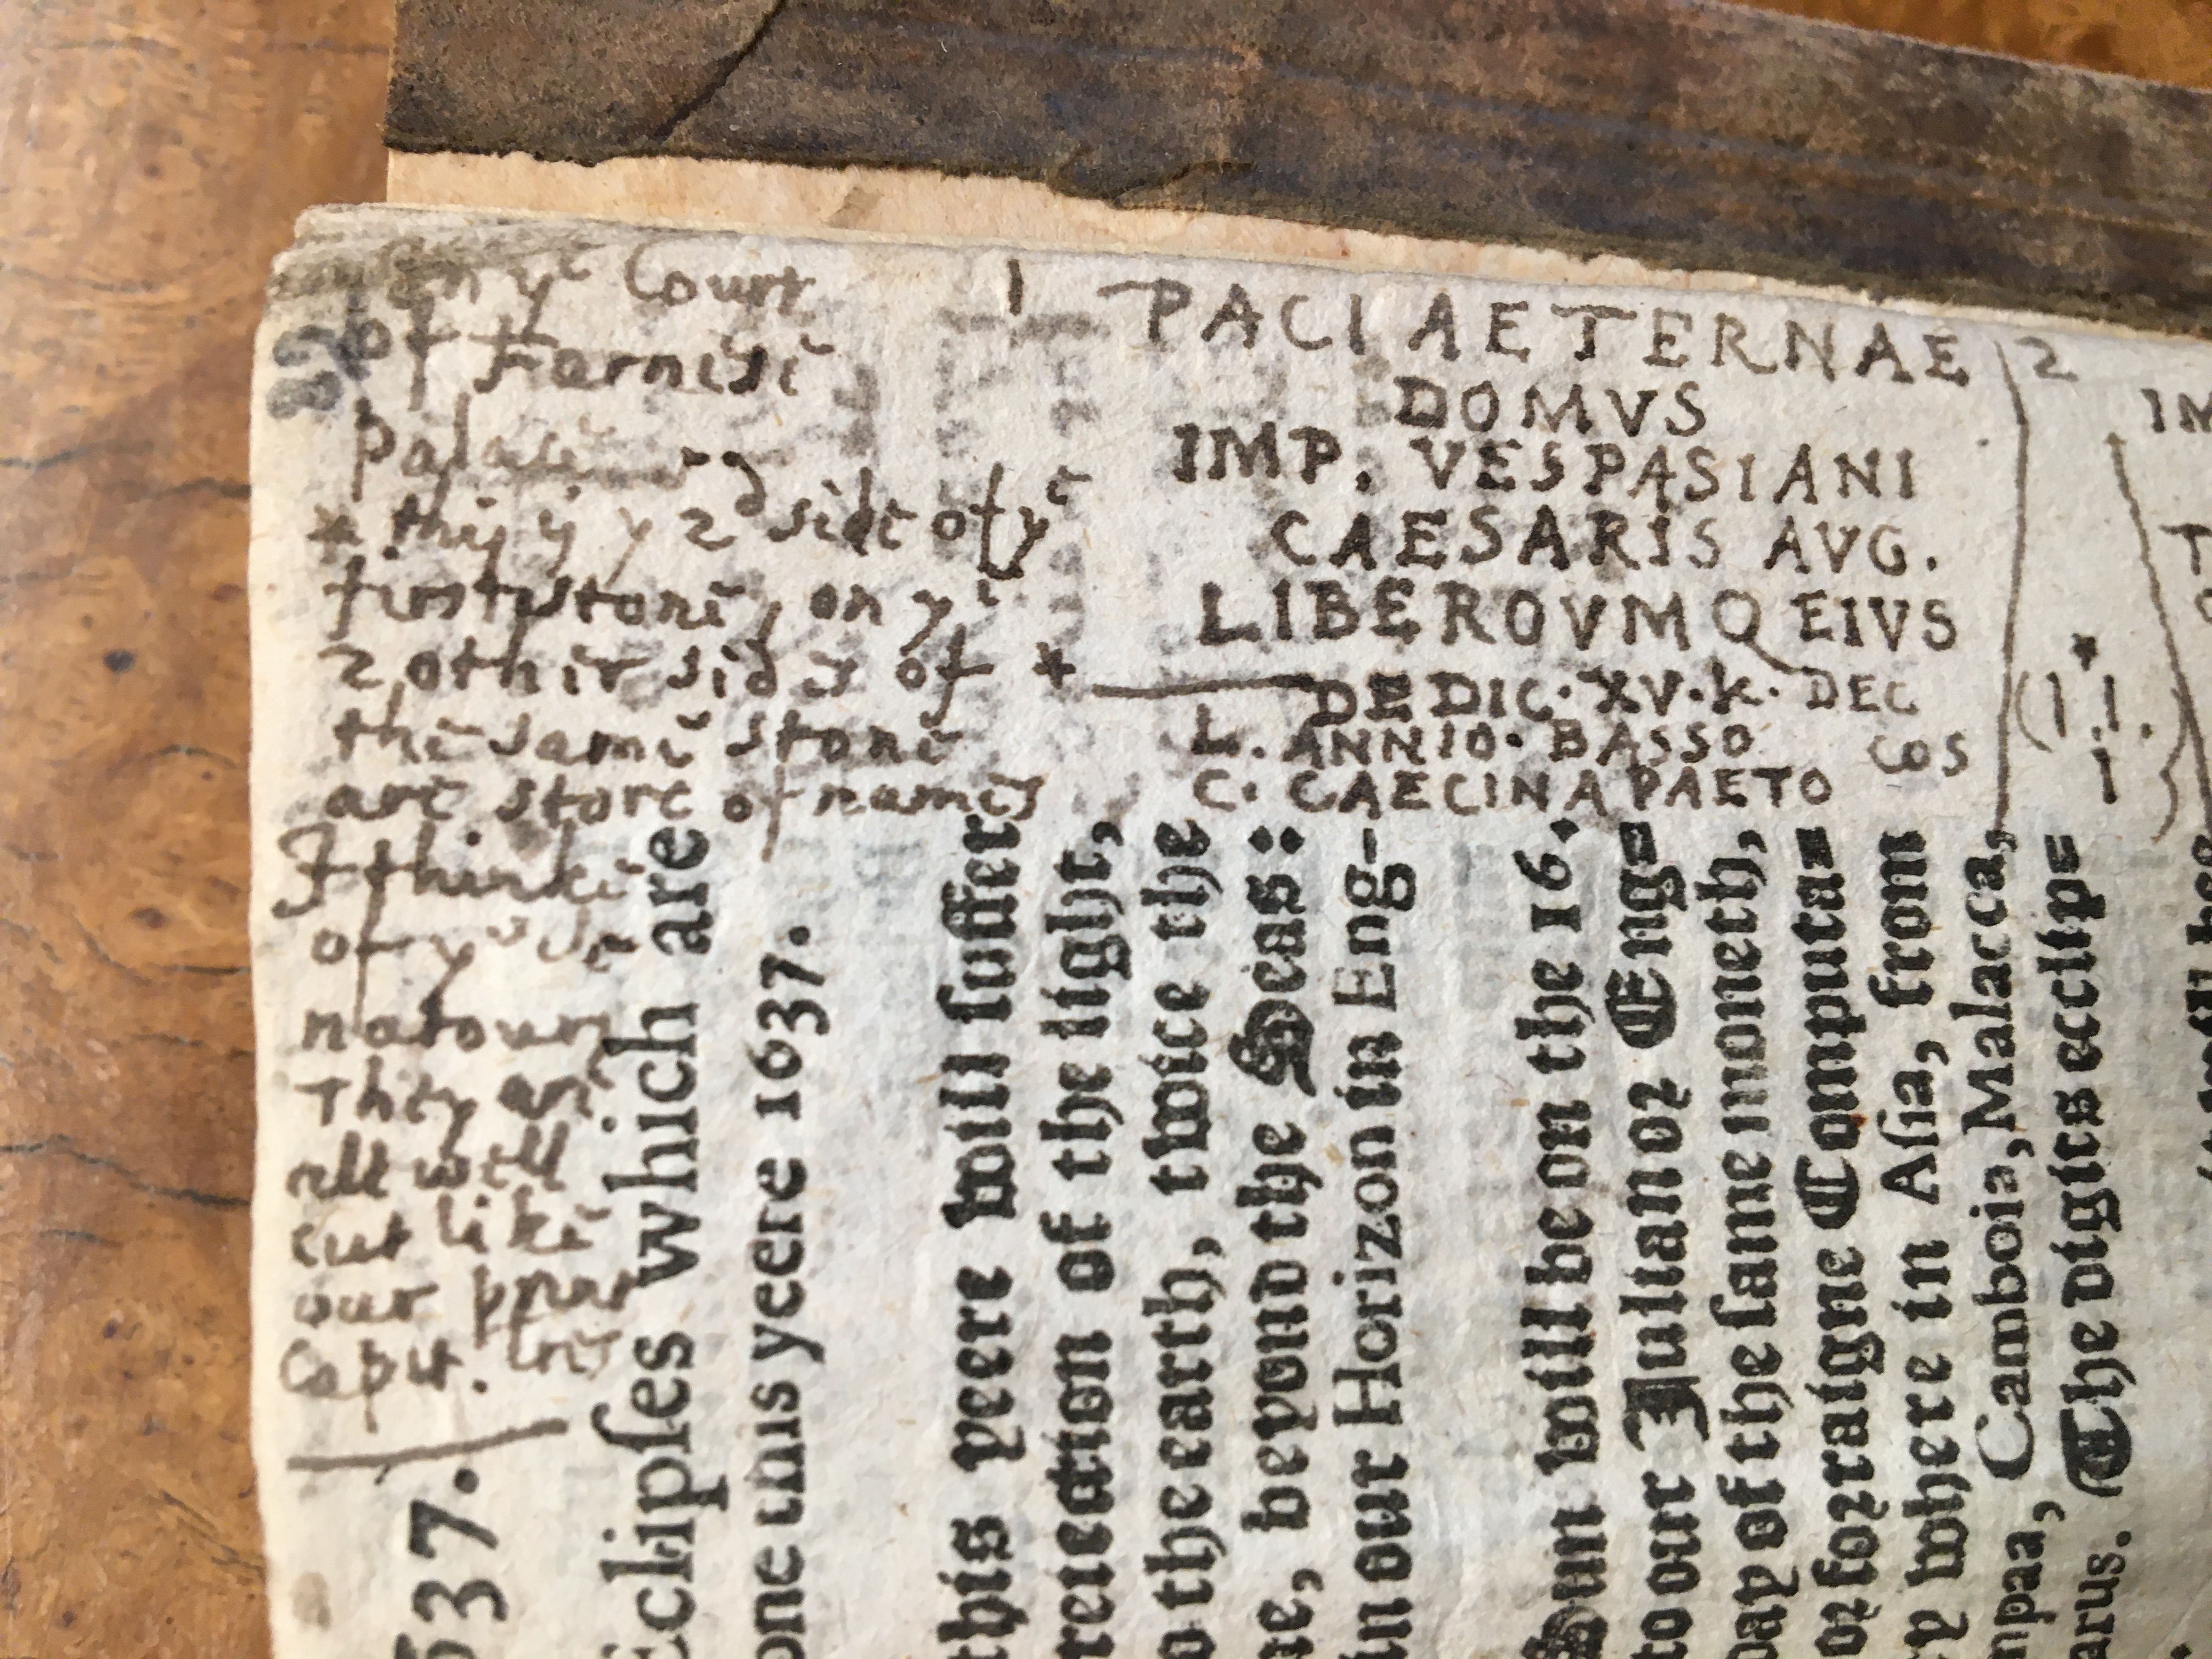 in yᵉ Court
of Farnese
palace
* this is yᵉ 2ᵈ side of yᵉ
first stone, on yᵉ
2 other sides of *
the same stone
are store of names
I think
of yᵉ
They are
all well
cut like
our
Capit.
1 PACI AETERNAE
DOMVS
IMP. VESPASIANI
CAESARIS AVG.
LIBEROVMQ EIVS
DEDIC. XV. K. DEC
L. ANNIO. BASSO COS
C. CAECINA PAETO
2
IM
(11.
1)
637.
Eclipſes which are
one this yeere 1637.
this yeere will ſuffer
of the light,
the earth, twice the
beyond the Seas:
in our Horizon in Eng-
Sun will be on the 16.
to our Julian or Eng=
day of the ſame moneth,
or forraigne Computa=
where in Aſia, from
mpaa, Camboia, Malacca,
arus. (The digits eclip=